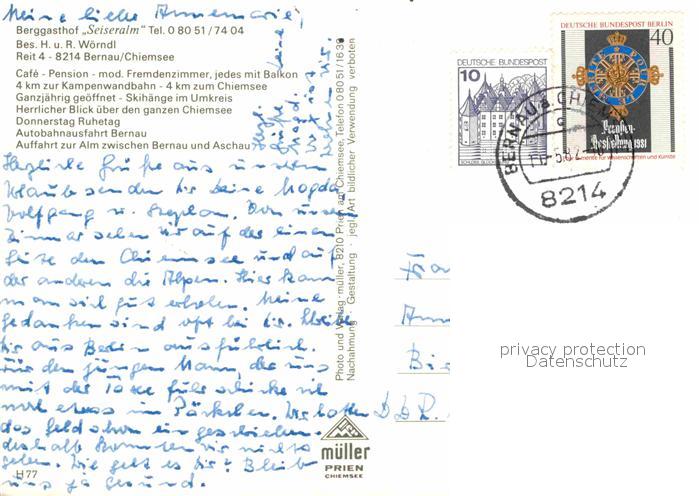 Meine liebe Annemarie,
Berggasthof „Seiseralm" Tel. 0 80 51 / 74 04
Bes. H. u. R. Wörndl
Reit 4 - 8214 Bernau/Chiemsee
Café - Pension - mod. Fremdenzimmer, jedes mit Balkon
4 km zur Kampenwandbahn - 4 km zum Chiemsee
Ganzjährig geöffnet - Skihänge im Umkreis
Herrlicher Blick über den ganzen Chiemsee
Donnerstag Ruhetag
Autobahnausfahrt Bernau
Auffahrt zur Alm zwischen Bernau und Aschau
Herzliche Grüße aus unserem
Urlaub senden dir deine Magda,
Wolfgang u. Stephan. Von unserem
Zimmer sehen wir auf der einen
Seite den Chiemsee und auf
der anderen die Alpen. Hier kann
man sich gut erholen. Meine
Gedanken sind oft bei dir. Schreibe
dir aus Berlin ausführlich.
Für den jungen Mann, der uns
mit der Taxe fuhr schicke ich
noch etwas im Päckchen. Wir hatten
das Geld schon
deshalb konnten wir nichts
geben. Wie geht es dir? Bleib
uns ja gesund.
H 77
Photo und Verlag: müller, 8210 Prien am Chiemsee, Telefon 0 80 51/16 39
Nachahmung - Gestaltung - jegl. Art bildlicher Verwendung verboten
müller
PRIEN
CHIEMSEE
DEUTSCHE BUNDESPOST
10
SCHLOSS GLÜCKSBURG
DEUTSCHE BUNDESPOST BERLIN
40
Preußen-
Ausstellung 1981
für Wissenschaften und Künste
BERNAU a. CHIEMSEE
8214
Frau
D D R.
privacy protection
Datenschutz